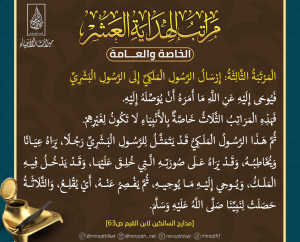 مراتب الهداية العشر
الخاصة والعامة
ميراث الأنبياء
المَرْتَبَةُ الثَّالِثَةُ: إِرْسَالُ الرَّسُولِ المَلَكِيِّ إِلَى الرَّسُولِ البَشَرِيِّ
فَيُوحِي إِلَيْهِ عَنِ اللَّهِ مَا أَمَرَهُ أَنْ يُوَصِّلَهُ إِلَيْهِ.
فَهَذِهِ المَرَاتِبُ الثَّلَاثُ خَاصَّةٌ بِالأَنْبِيَاءِ لَا تَكُونُ لِغَيْرِهِمْ.
ثُمَّ هَذَا الرَّسُولُ المَلَكِيُّ قَدْ يَتَمَثَّلُ لِلرَّسُولِ البَشَرِيِّ رَجُلًا، يَرَاهُ عِيَانًا
وَيُخَاطِبُهُ، وَقَدْ يَرَاهُ عَلَى صُورَتِهِ الَّتِي خُلِقَ عَلَيْهَا، وَقَدْ يَدْخُلُ فِيهِ
المَلَكُ، وَيُوحِي إِلَيْهِ مَا يُوحِيهِ، ثُمَّ يَفْصِمُ عَنْهُ، أَيْ يُقْلِعُ، وَالثَّلَاثَةُ
حَصَلَتْ لِنَبِيِّنَا صَلَّى اللَّهُ عَلَيْهِ وَسَلَّمَ.
[مدارج السالكين لابن القيم ص63]